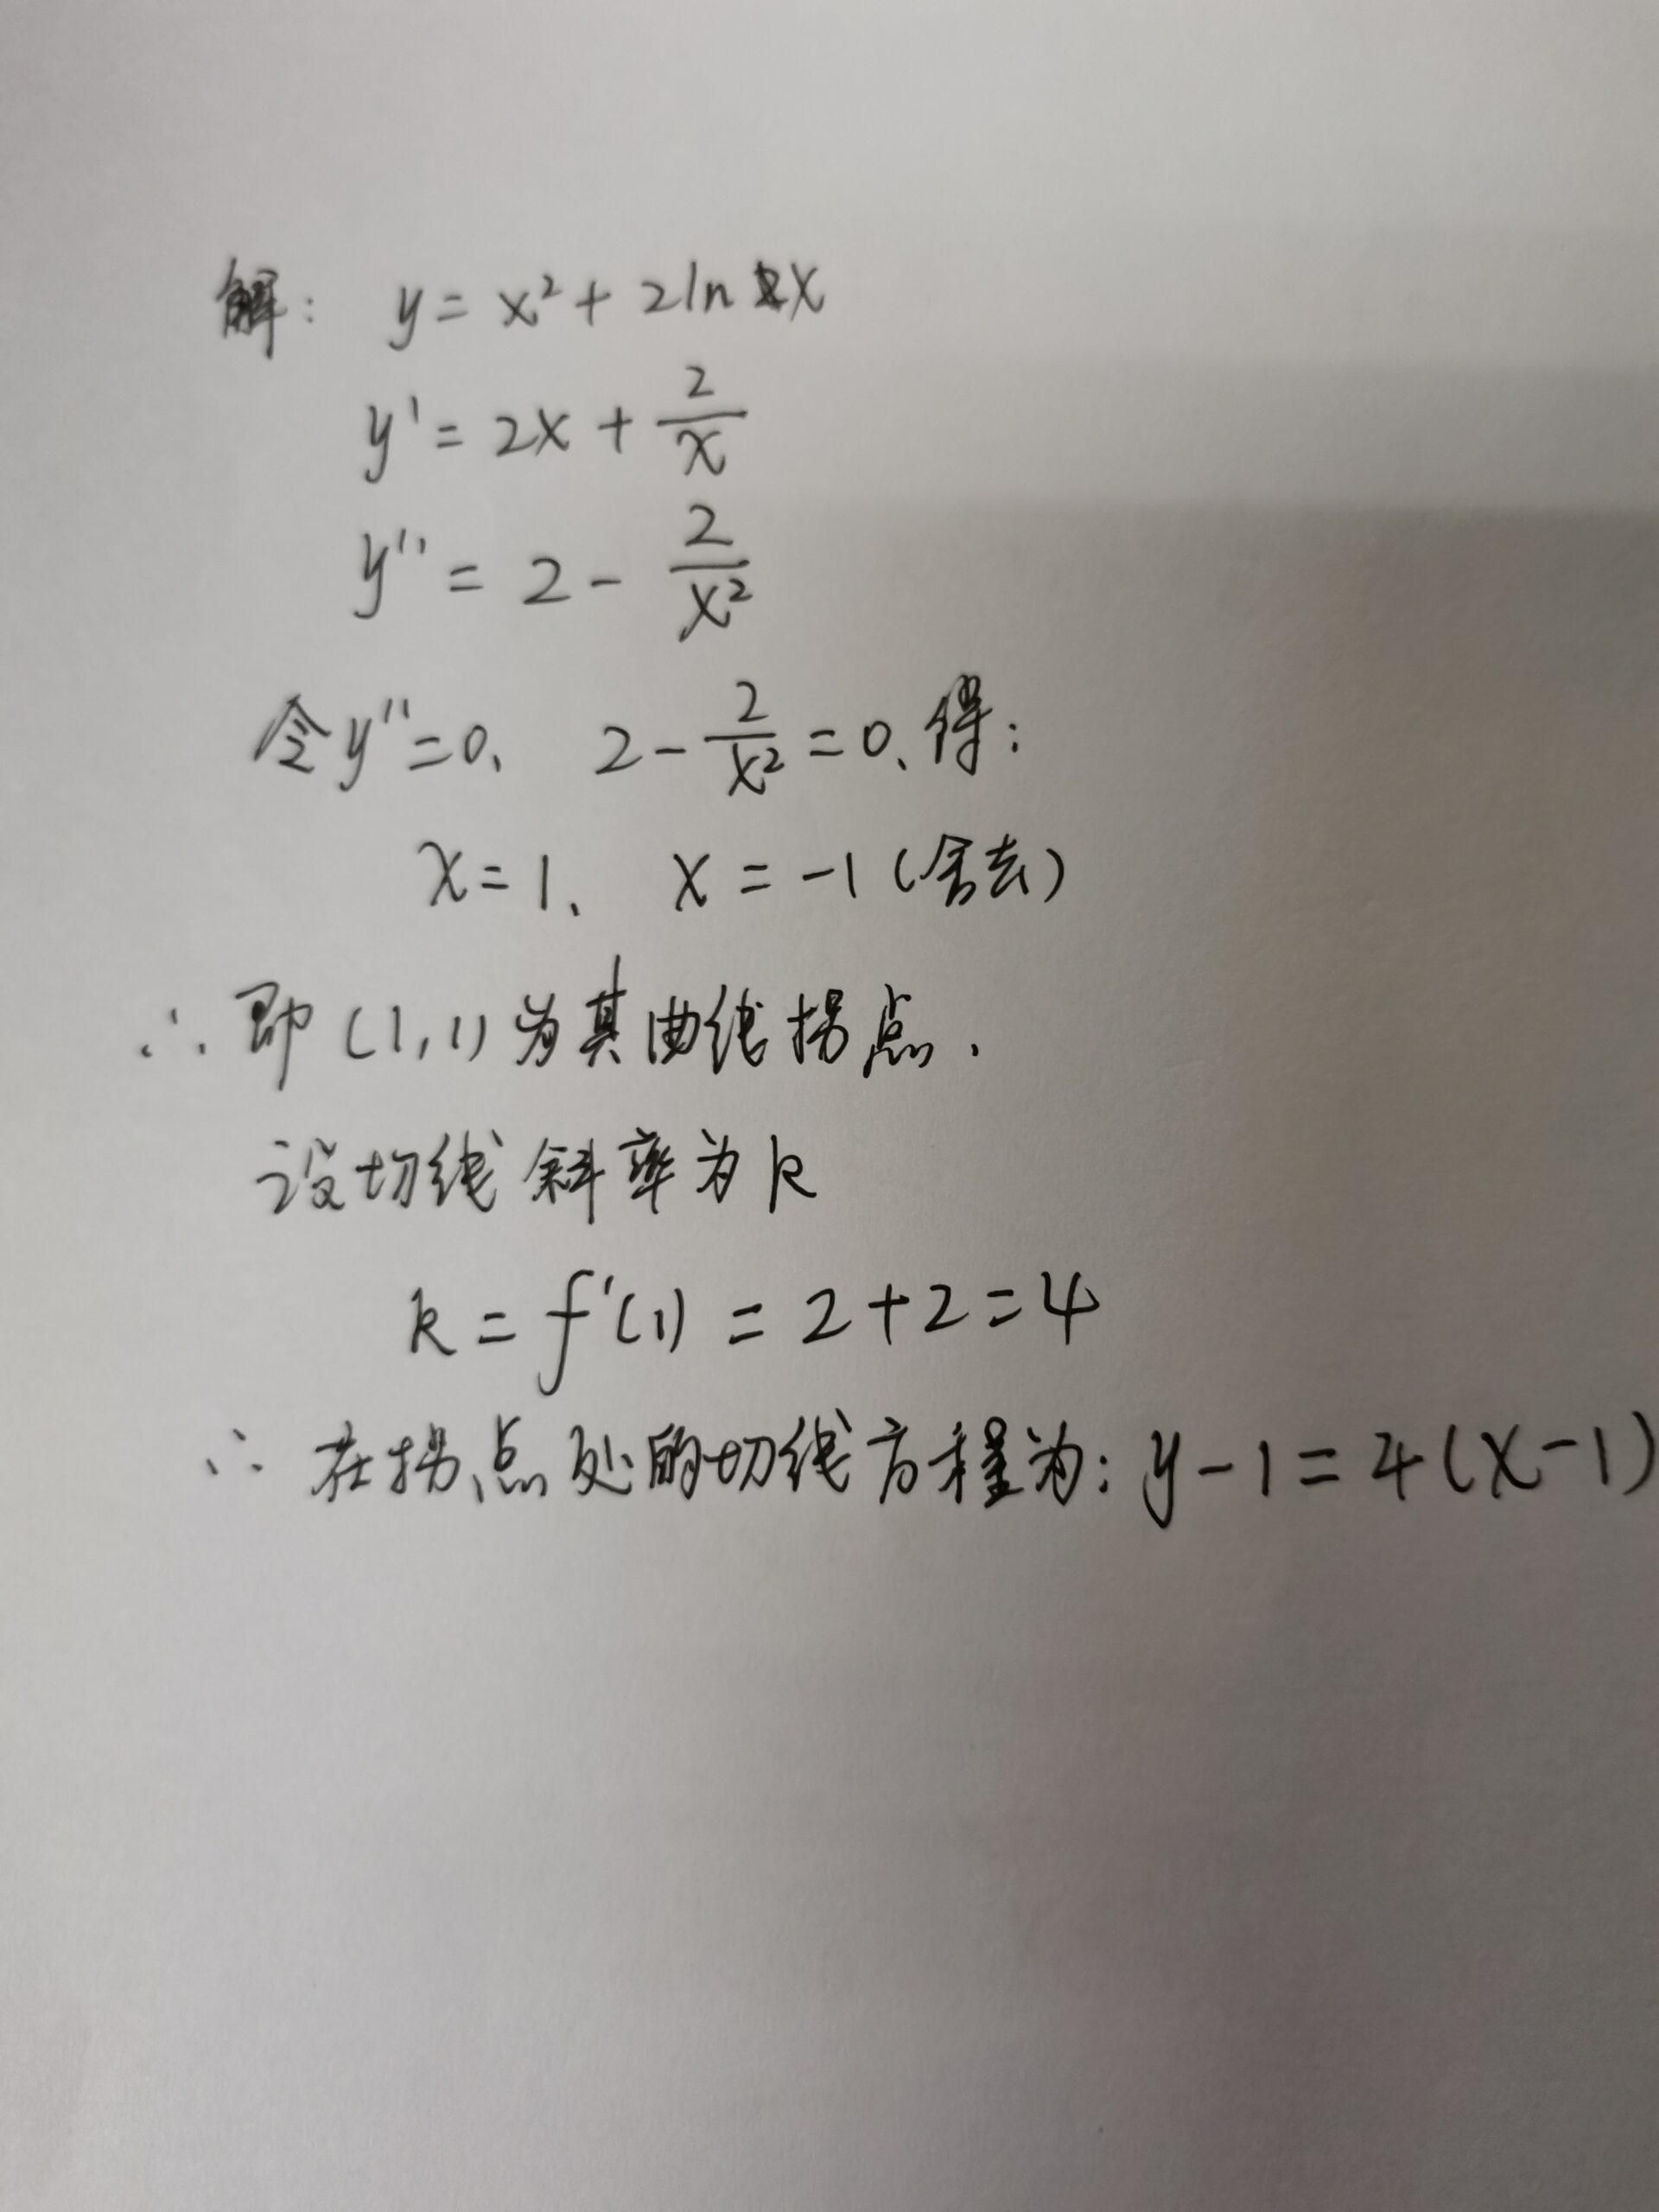 解: y = x² + 2ln x
y' = 2x + 2/x
y'' = 2 - 2/x²
令y''=0、 2 - 2/x² = 0、得:
x = 1、 x = -1 (舍去)
∴ 即 (1,1) 为其曲线拐点.
设切线斜率为k
k = f'(1) = 2+2=4
∴ 在拐点处的切线方程为: y-1=4(x-1)